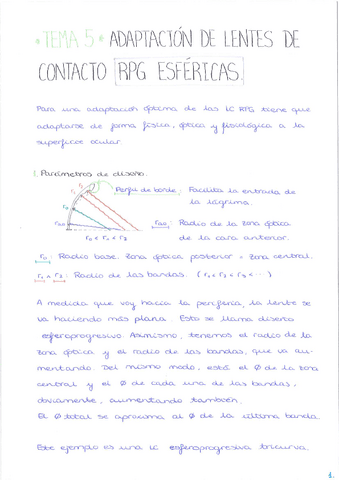 • TEMA 5 • ADAPTACIÓN DE LENTES DE
CONTACTO RPG ESFÉRICAS.
Para una adaptación óptima de las LC RPG tiene que
adaptarse de forma física, óptica y fisiológica a la
superficie ocular.
1. Parámetros de diseño.
Perfil de borde: Facilita la entrada de
la lágrima.
r₀ < r₁ < r₂
Radio de la zona óptica
de la cara anterior.
r₀: Radio base. Zona óptica posterior = zona central.
r₁ ∧ r₂: Radio de las bandas. (r₁ < r₂ < r₃ < ...)
A medida que voy hacia la periferia, la lente se
va haciendo más plana. Esto se llama diseño
esferoprogresivo. Asimismo, tenemos el radio de la
zona óptica y el radio de las bandas, que va au-
mentando. Del mismo modo, está el Ø de la zona
central y el Ø de cada una de las bandas,
obviamente, aumentando también.
El Ø total se aproxima al Ø de la última banda.
Este ejemplo es una LC esferoprogresiva tricurva.
1.